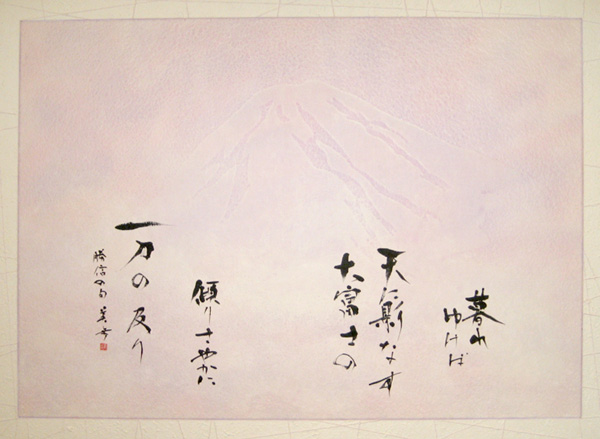 暮れ
ゆけば
天に影なす
大富士の
傾りさやかに
一刀の反り
勝信の句